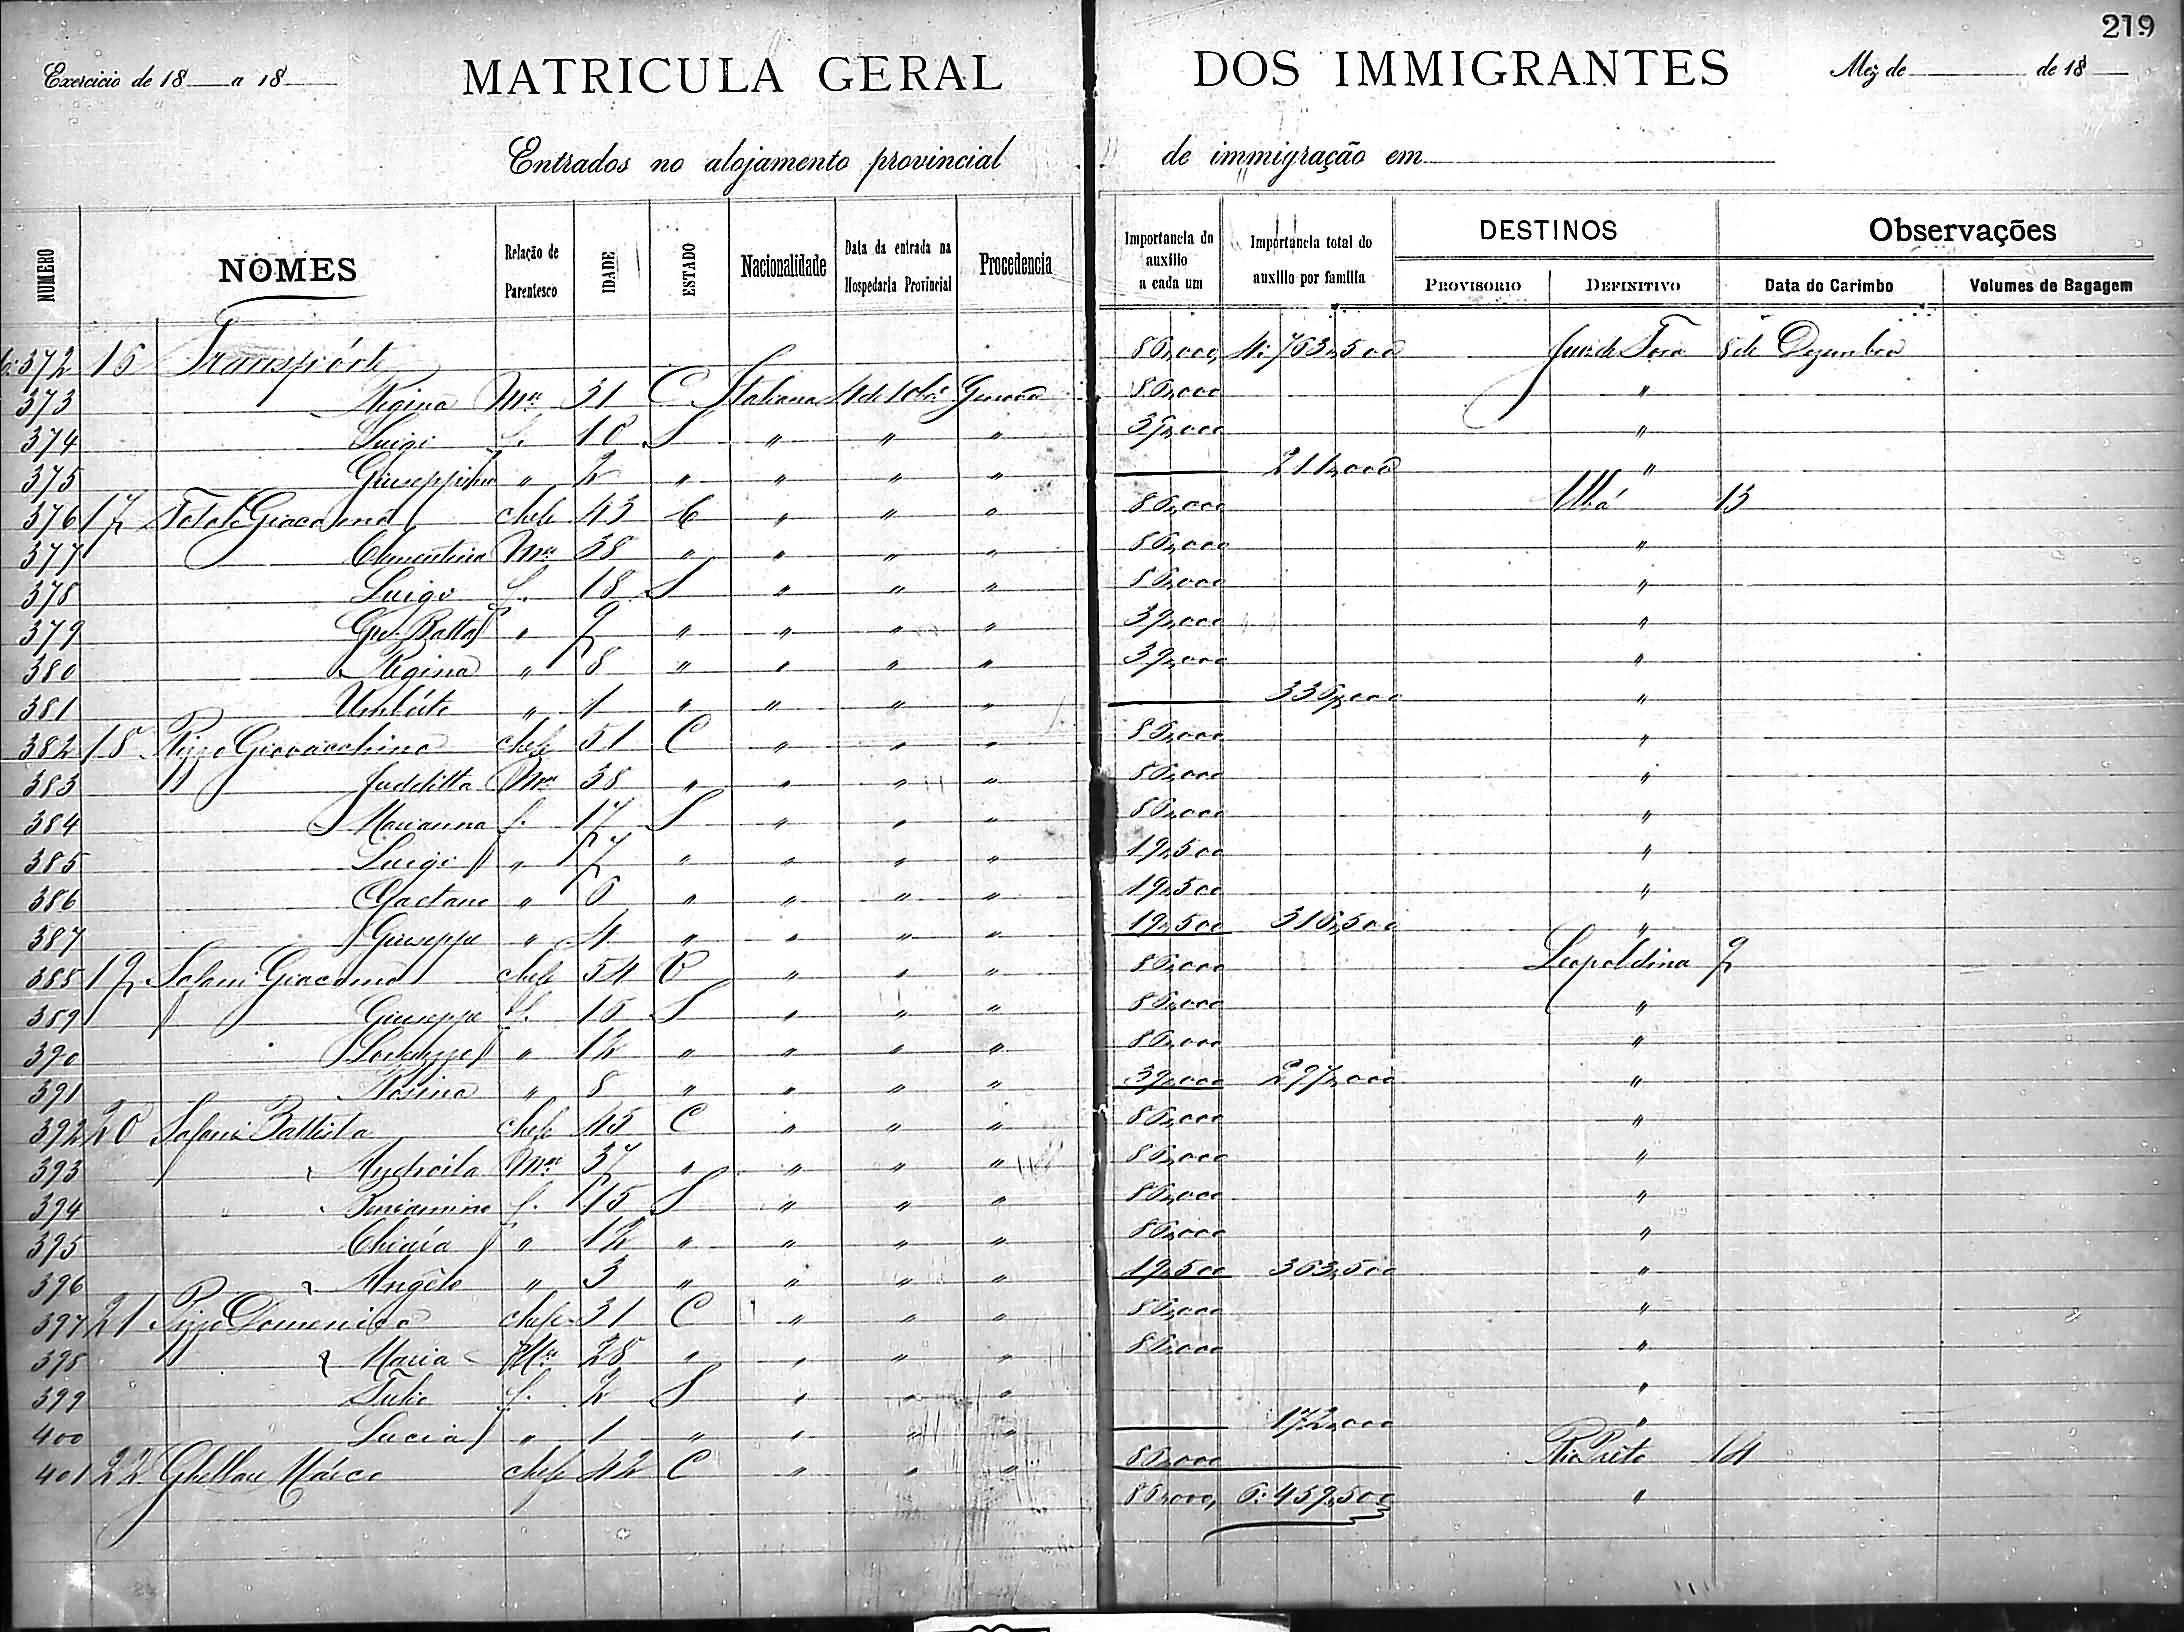 219
Exercicio de 18 a 18 MATRICULA GERAL DOS IMMIGRANTES Mez de de 18
Entrados no alojamento provincial de immigração em
NUMERO NOMES Relação de Parentesco IDADE ESTADO Nacionalidade Data da entrada na Hospedaria Provincial Procedencia Importancia do auxilio a cada um Importancia total do auxilio por familia DESTINOS PROVISORIO DEFINITIVO Observações Data do Carimbo Volumes de Bagagem
372 16 Transpórte 86,000 4:763,500 Juiz de Fora 8 de Dezembro
373 Regina Mer 31 C Italiana 4 de 10bro Genova 86,000 "
374 Luigi f. 10 S " " " 39,000 "
375 Giuseppina " 2 " " " " 211,000 "
376 17 Giacomo chefe 43 C " " " 86,000 Ubá 13
377 Clementina Mer 38 " " " " 86,000 "
378 Luigi f. 18 S " " " 86,000 "
379 Gio. Batta " 9 " " " " 39,000 "
380 Regina " 8 " " " " 39,000 "
381 " 1 " " " " 336,000 "
382 18 Giovacchino chefe 51 C " " " 86,000 "
383 Judditta Mer 38 " " " " 86,000 "
384 Marianna f. 17 S " " " 86,000 "
385 Luigi " 7 " " " " 19,500 "
386 Gaetano " 6 " " " " 19,500 "
387 Giuseppe " 4 " " " " 19,500 316,500 "
388 19 Giacomo chefe 54 " " " 86,000 Leopoldina 9
389 Giuseppe f. 16 S " " " 86,000 "
390 " 12 " " " " 86,000 "
391 Rosina " 8 " " " " 39,000 297,000 "
392 20 Battista chefe 45 C " " " 86,000 "
393 Mer 37 " " " " 86,000 "
394 Beniamino f. 15 S " " " 86,000 "
395 Chiara " 12 " " " " 86,000 "
396 Angelo " 3 " " " " 19,500 363,500 "
397 21 Domenico chefe 31 C " " " 86,000 "
398 Maria Mer 28 " " " " 86,000 "
399 f. 2 S " " " "
400 Lucia " 1 " " " " 172,000 "
401 22 Marco chefe 42 C " " " 86,000 Rio Preto 14
86,000 6:459,500 "